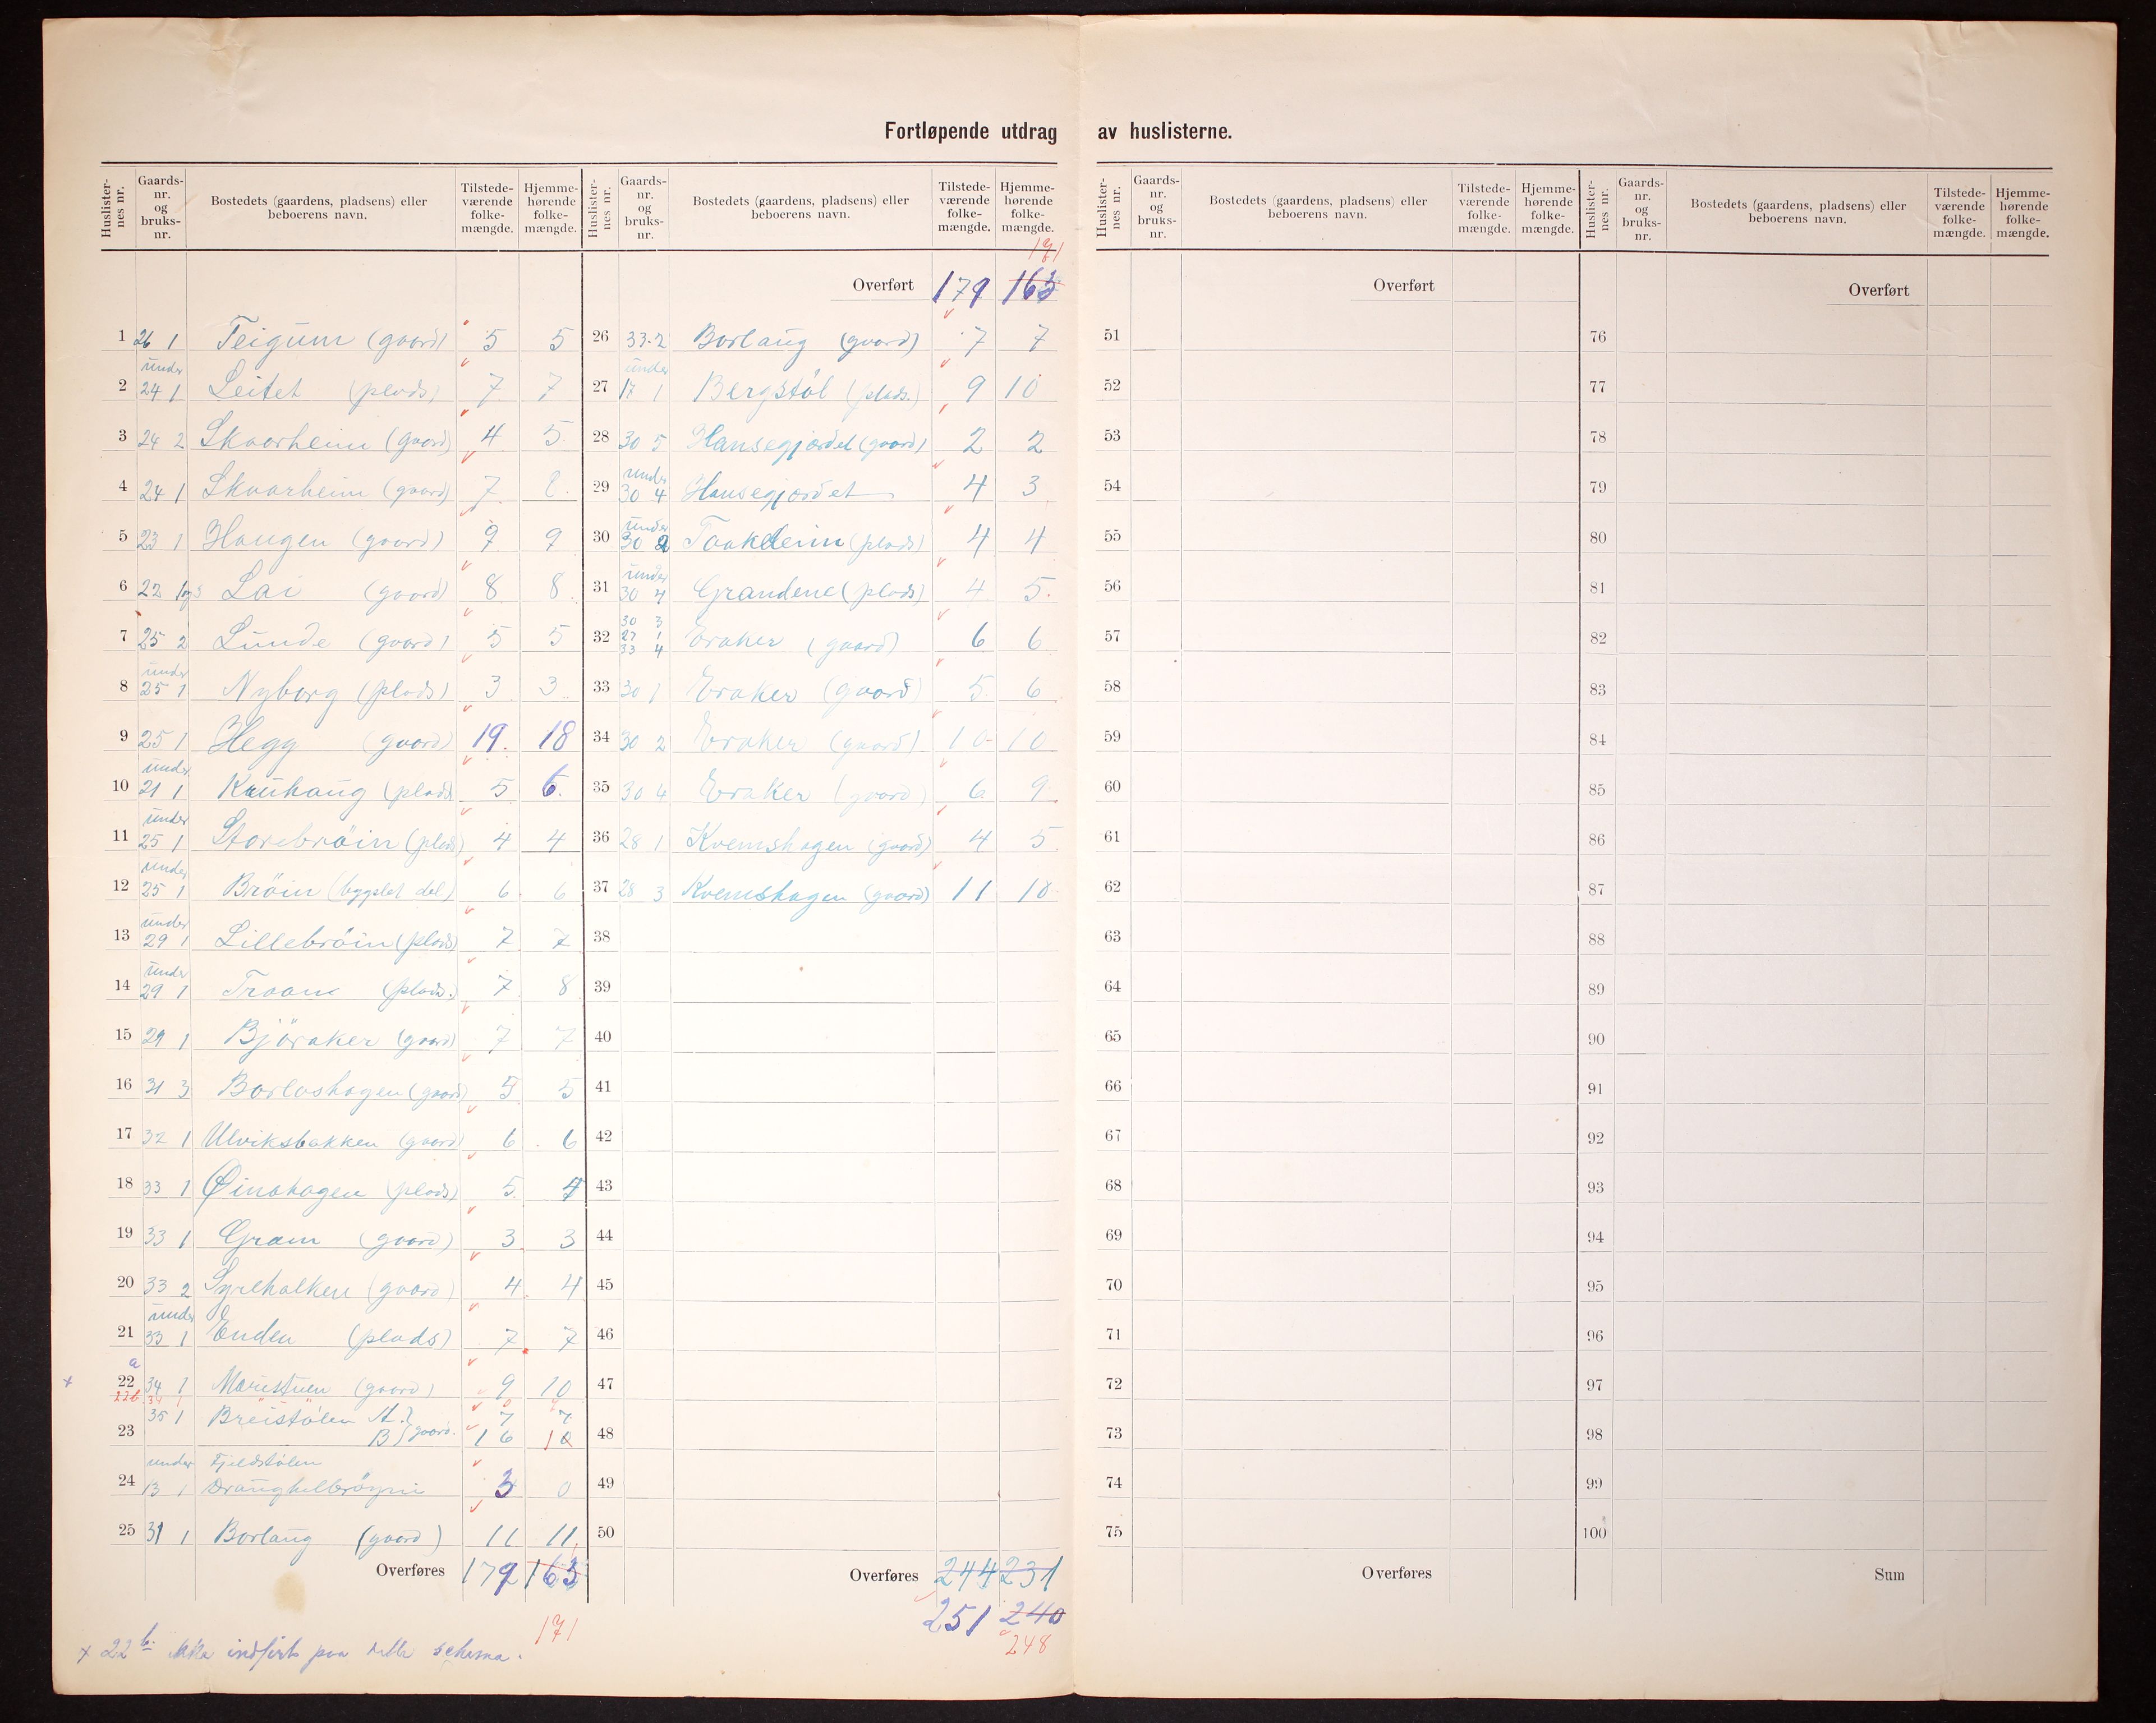 Fortløpende utdrag av huslisterne.
Huslister-nes nr. | Gaards-nr. og bruks-nr. | Bostedets (gaardens, pladsens) eller beboerens navn. | Tilstede-værende folke-mængde. | Hjemme-hørende folke-mængde.
1 26 1 Teigum (gaard) 5 5
2 under 24 1 Leitet (plads) 7 7
3 24 2 Skaarheim (gaard) 4 5
4 24 1 Skaarheim (gaard) 7 8
5 23 1 Haugen (gaard) 9 9
6 22 1 og 3 Lai (gaard) 8 8
7 25 2 Lunde (gaard) 5 5
8 under 25 1 Nyborg (plads) 3 3
9 25 1 Hegg (gaard) 19 18
10 under 21 1 Kauhaug (plads) 5 6
11 under 25 1 Storebröin (plads) 4 4
12 under 25 1 Bröin (bygslet del) 6 6
13 under 29 1 Lillebröin (plads) 7 7
14 under 29 1 Traane (plads.) 7 8
15 29 1 Björaker (gaard) 7 7
16 31 3 Borloshagen (gaard) 5 5
17 32 1 Ulviksbakken (gaard) 6 6
18 33 1 Øinahagen (plads) 5 4
19 33 1 Gram (gaard) 3 3
20 33 2 (gaard) 4 4
21 under 33 1 Enden (plads) 7 7
a
+ 22 34 1 Maristuen (gaard) 9 10
22b 34 1 0
23 35 1 Breistölen A. } gaard. 7 7
B 16 10
24 under 13 1 Fjeldstölen 3 0
25 31 1 Borlaug (gaard) 11 11
Overføres 179 163
171
+ 22 b. ikke indført paa dette schema.
Huslister-nes nr. | Gaards-nr. og bruks-nr. | Bostedets (gaardens, pladsens) eller beboerens navn. | Tilstede-værende folke-mængde. | Hjemme-hørende folke-mængde.
171
Overført 179 163
26 33.2 Borlaug (gaard) 7 7
27 under 17 1 Bergstöl (plads.) 9 10
28 30 5 Hansegjærdet (gaard) 2 2
29 under 30 4 Hansegjærdet 4 3
30 under 30 2 Taakeheim (plads) 4 4
31 under 30 4 Grandene (plads) 4 5
32 30 3 27 1 33 4 Eraker (gaard) 6 6
33 30 1 Eraker (gaard) 5 6
34 30 2 Eraker (gaard) 10 10
35 30 4 Eraker (gaard) 6 9
36 28 1 Kvemshagen (gaard) 4 5
37 28 3 Kvemshagen (gaard) 11 10
38
39
40
41
42
43
44
45
46
47
48
49
50
Overføres 244 231
251 240
248
Huslister-nes nr. | Gaards-nr. og bruks-nr. | Bostedets (gaardens, pladsens) eller beboerens navn. | Tilstede-værende folke-mængde. | Hjemme-hørende folke-mængde.
Overført
51
52
53
54
55
56
57
58
59
60
61
62
63
64
65
66
67
68
69
70
71
72
73
74
75
Overføres
Huslister-nes nr. | Gaards-nr. og bruks-nr. | Bostedets (gaardens, pladsens) eller beboerens navn. | Tilstede-værende folke-mængde. | Hjemme-hørende folke-mængde.
Overført
76
77
78
79
80
81
82
83
84
85
86
87
88
89
90
91
92
93
94
95
96
97
98
99
100
Sum